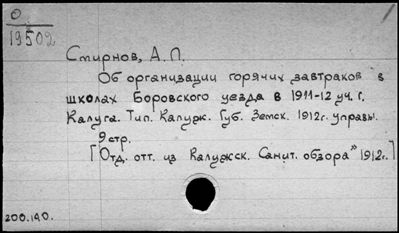 0
19502
Смирнов, А. П.
Об организации горячих завтраков в
школах Боровского уезда в 1911-12 уч. г.
Калуга. Тип. Калуж. Губ. Земск. 1912г. управы.
9 стр.
[Отд. отт. из Калужск. Санит. обзора" 1912г.]
200.140.